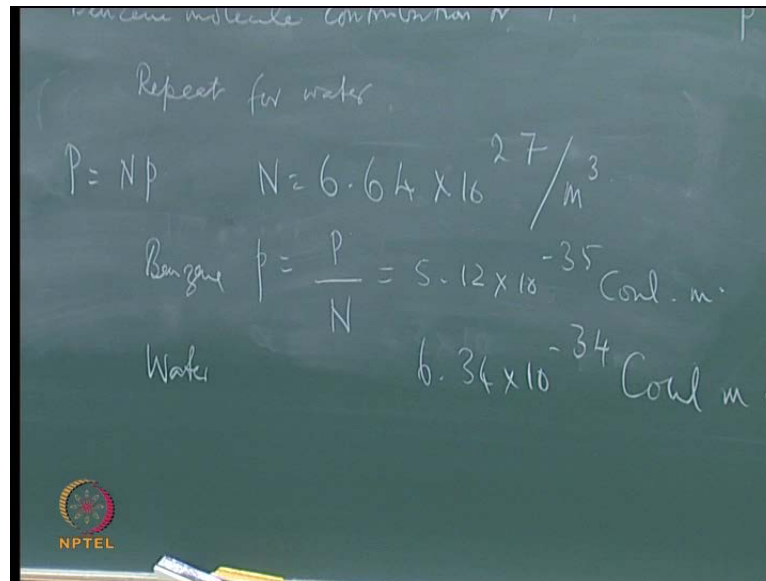 Benzene molecule contribution
p
Repeat for water.
P = Np N = 6.64 × 10^27 / m^3
Benzene p = P / N = 5.12 × 10^-35 Coul. m.
Water 6.34 × 10^-34 Coul m
NPTEL